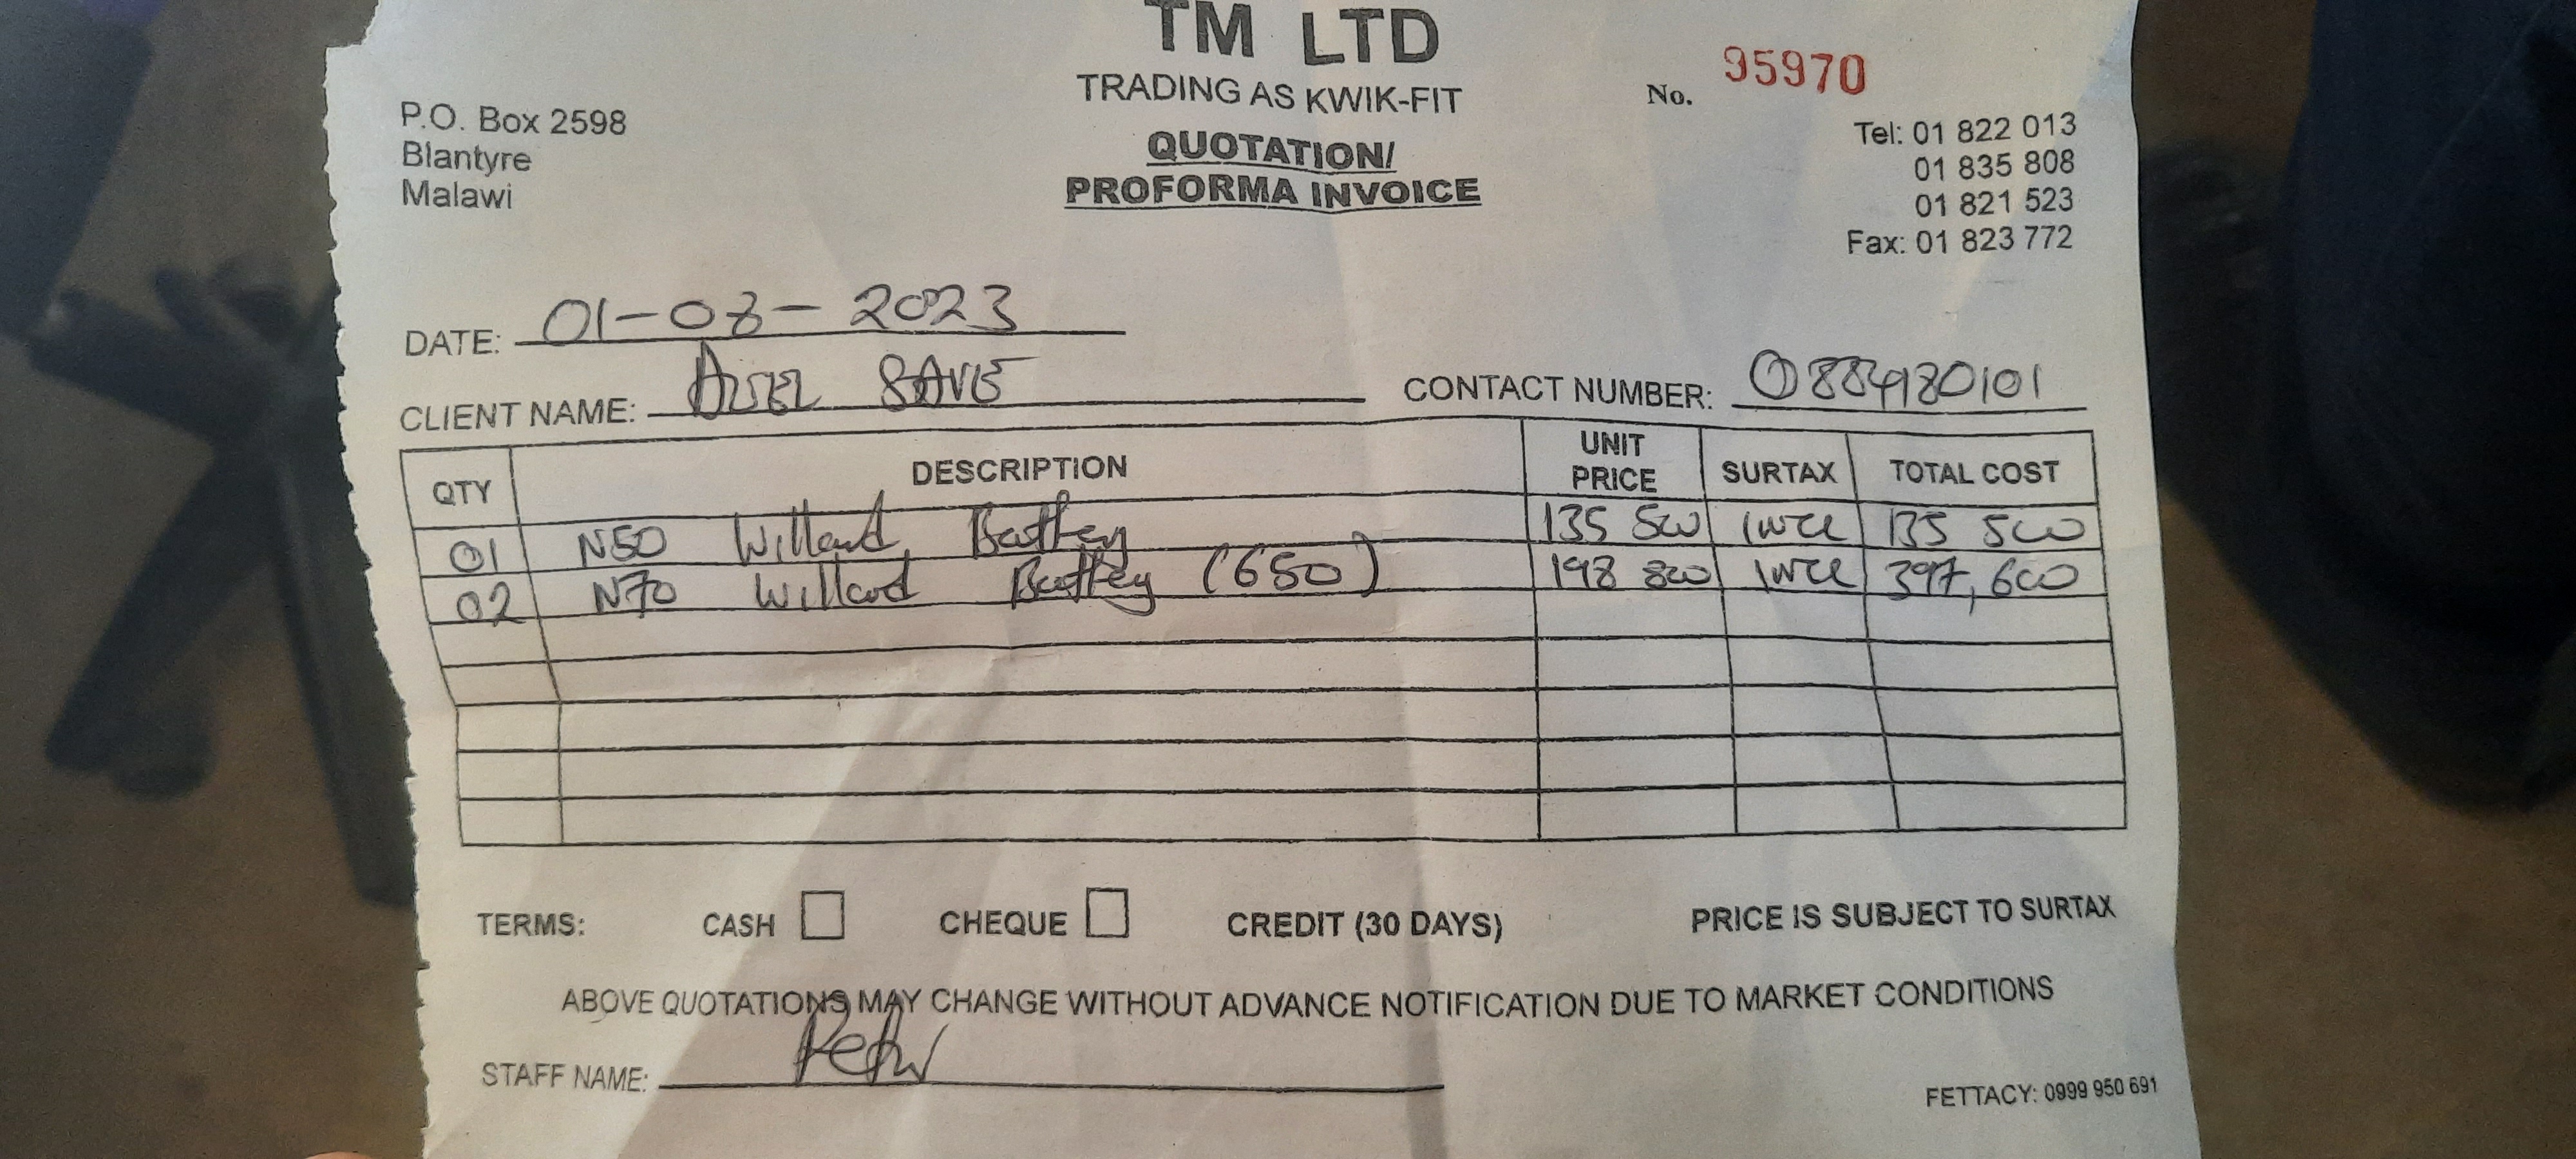 TM LTD
TRADING AS KWIK-FIT
QUOTATION/
PROFORMA INVOICE
P.O. Box 2598
Blantyre
Malawi
No. 95970
Tel: 01 822 013
01 835 808
01 821 523
Fax: 01 823 772
DATE: 01-08-2023
CLIENT NAME: CONTACT NUMBER: 0884920101
QTY DESCRIPTION UNIT PRICE SURTAX TOTAL COST
01 N50 Willard Battery 135 500 Incl 135 500
02 N70 Willard Battery (650) 198 800 Incl 397,600
TERMS: CASH CHEQUE CREDIT (30 DAYS) PRICE IS SUBJECT TO SURTAX
ABOVE QUOTATIONS MAY CHANGE WITHOUT ADVANCE NOTIFICATION DUE TO MARKET CONDITIONS
STAFF NAME:
FETTACY: 0999 950 691